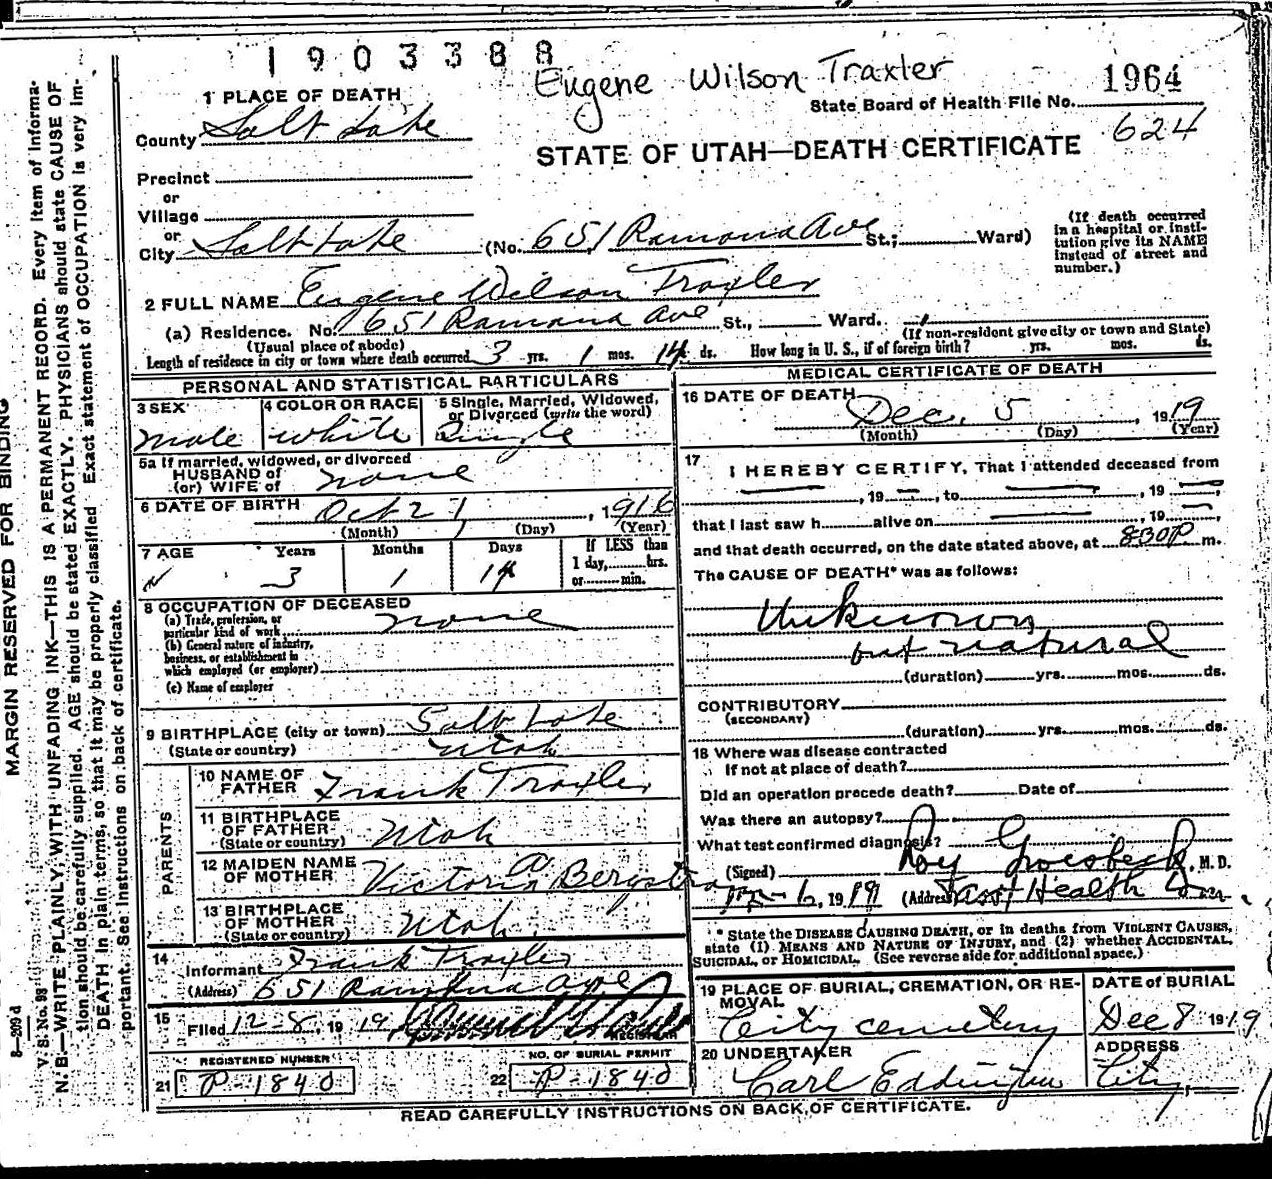 1903388
Eugene Wilson Traxler
1964
State Board of Health File No.
624
STATE OF UTAH—DEATH CERTIFICATE
1 PLACE OF DEATH
County Salt Lake
Precinct
or
Village
or
City Salt Lake (No. 651 Ramona Ave St.; Ward)
(If death occurred in a hospital or institution give its NAME instead of street and number.)
2 FULL NAME Eugene Wilson Traxler
(a) Residence. No. 651 Ramona Ave St., Ward.
(Usual place of abode) (If non-resident give city or town and State)
Length of residence in city or town where death occurred 3 yrs. 1 mos. 14 ds. How long in U. S., if of foreign birth? yrs. mos. ds.
PERSONAL AND STATISTICAL PARTICULARS
3 SEX 4 COLOR OR RACE 5 Single, Married, Widowed, or Divorced (write the word)
Male white Single
5a If married, widowed, or divorced
HUSBAND of
(or) WIFE of none
6 DATE OF BIRTH Oct 21, 1916
(Month) (Day) (Year)
7 AGE Years Months Days If LESS than
1 day, hrs.
or min.
3 1 14
8 OCCUPATION OF DECEASED
(a) Trade, profession, or
particular kind of work none
(b) General nature of industry,
business, or establishment in
which employed (or employer)
(c) Name of employer
9 BIRTHPLACE (city or town) Salt Lake
(State or country) Utah
PARENTS
10 NAME OF
FATHER Frank Traxler
11 BIRTHPLACE
OF FATHER
(State or country) Utah
12 MAIDEN NAME
OF MOTHER Victoria Bergstrom
13 BIRTHPLACE
OF MOTHER
(State or country) Utah
14
Informant Frank Traxler
(Address) 651 Ramona ave
15
Filed 12-8, 1919
REGISTRAR
REGISTERED NUMBER
21 P-1840
NO. OF BURIAL PERMIT
22 P-1840
MEDICAL CERTIFICATE OF DEATH
16 DATE OF DEATH
Dec. 5, 1919
(Month) (Day) (Year)
17
I HEREBY CERTIFY, That I attended deceased from
, 19 , to , 19 ,
that I last saw h alive on , 19 ,
and that death occurred, on the date stated above, at 830P m.
The CAUSE OF DEATH* was as follows:
Unknown
but natural
(duration) yrs. mos. ds.
CONTRIBUTORY
(SECONDARY)
(duration) yrs. mos. ds.
18 Where was disease contracted
If not at place of death?
Did an operation precede death? Date of
Was there an autopsy?
What test confirmed diagnosis?
(Signed) Roy Groesbeck, M. D.
6, 1919 (Address) Asst Health
* State the DISEASE CAUSING DEATH, or in deaths from VIOLENT CAUSES,
state (1) MEANS AND NATURE OF INJURY, and (2) whether ACCIDENTAL,
SUICIDAL, or HOMICIDAL. (See reverse side for additional space.)
19 PLACE OF BURIAL, CREMATION, OR REMOVAL
City cemetery
DATE OF BURIAL
Dec 8 1919
20 UNDERTAKER
Carl Eddington
ADDRESS
City
READ CAREFULLY INSTRUCTIONS ON BACK OF CERTIFICATE.
MARGIN RESERVED FOR BINDING
8—209 d
V. S. No. 93
N. B.—WRITE PLAINLY, WITH UNFADING INK—THIS IS A PERMANENT RECORD. Every item of information should be carefully supplied. AGE should be stated EXACTLY. PHYSICIANS should state CAUSE OF DEATH in plain terms, so that it may be properly classified. Exact statement of OCCUPATION is very important. See Instructions on back of certificate.